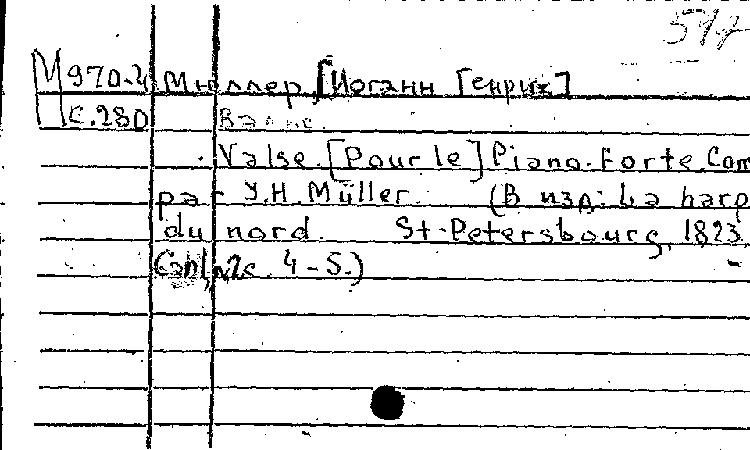 517
М970.4 Мюллер, [Иоганн Генрих]
С.280 Вальс.
Valse [Pour le] Piano-Forte. Com
par J.H. Müller. (В изд: La harp
du nord. St-Petersbourg, 1823.
4-5.)